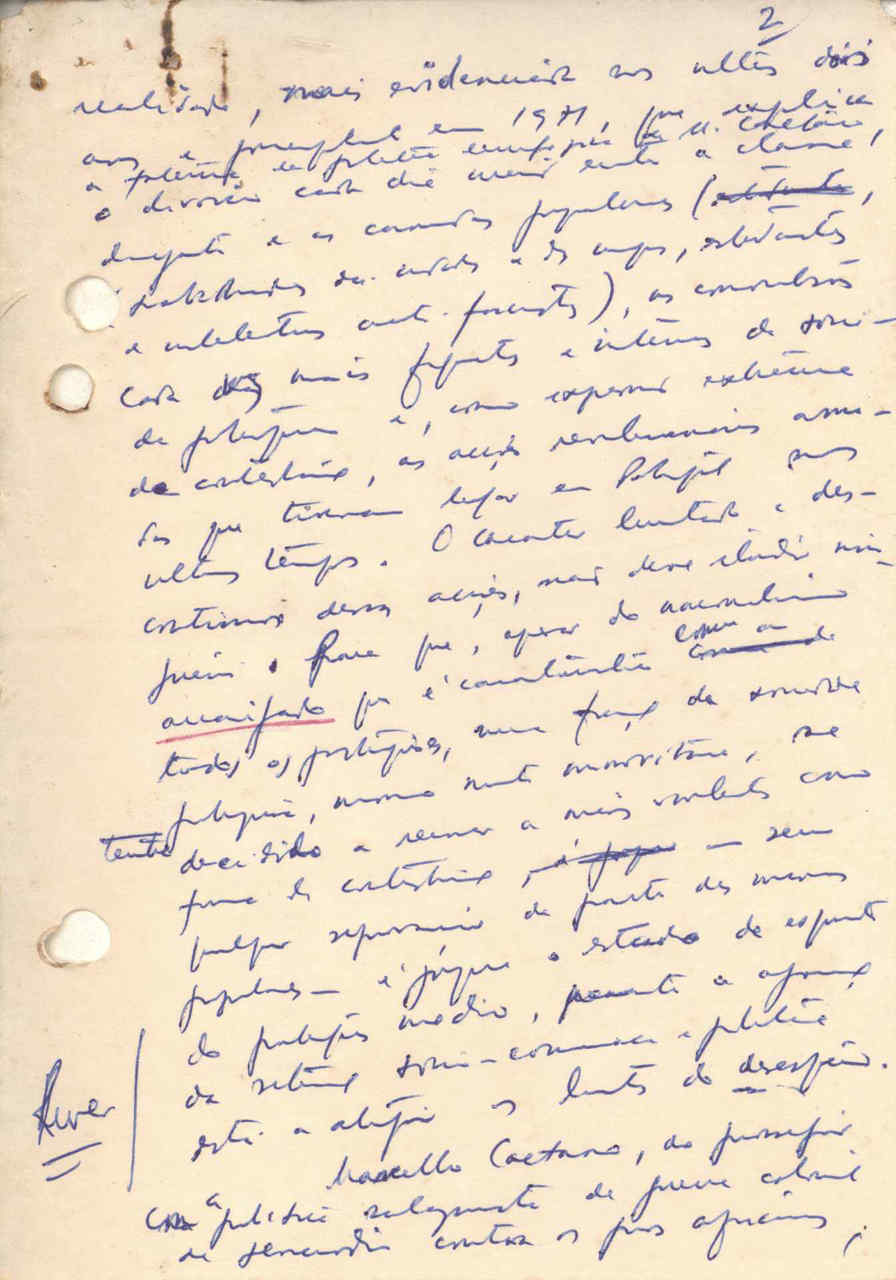 2
realidade, mais evidenciada nos ultºs dois
anos e principalmt em 1971, que explica
a falência da política demagógica de M. Caetano,
o divórcio cada dia maior entre a classe
dirigente e as camadas populares (
trabalhadores das cidades e dos campos, estudantes
e intelectuais anti-fascistas), as convulsões
cada vez mais frequentes e intensas da socie-
dade portuguesa e, como expressão extrema
de contestação, as acções revolucionárias arma-
das que tiveram lugar em Portugal nos
ultimos tempos. O caracter limitado e des-
contínuo dessas acções, não deve iludir nin-
guém. Prova que, apesar do nacionalismo
arreigado que é caracteristica comum a
todos os portugueses, uma fracção da sociedade
portuguesa, mesmo muito minoritária, se
tenha decidido a recorrer a mais violenta como
forma de contestação, — sem
qualquer repressão da parte das massas
populares — é porque o estado de espírito
do português médio, perante a
da situação socio-económica e política
está a atingir os limites do desespero.
Rever
Marcello Caetano, ao prosseguir
com a política salazarista de guerra colonial
de genocídio contra os povos africanos,